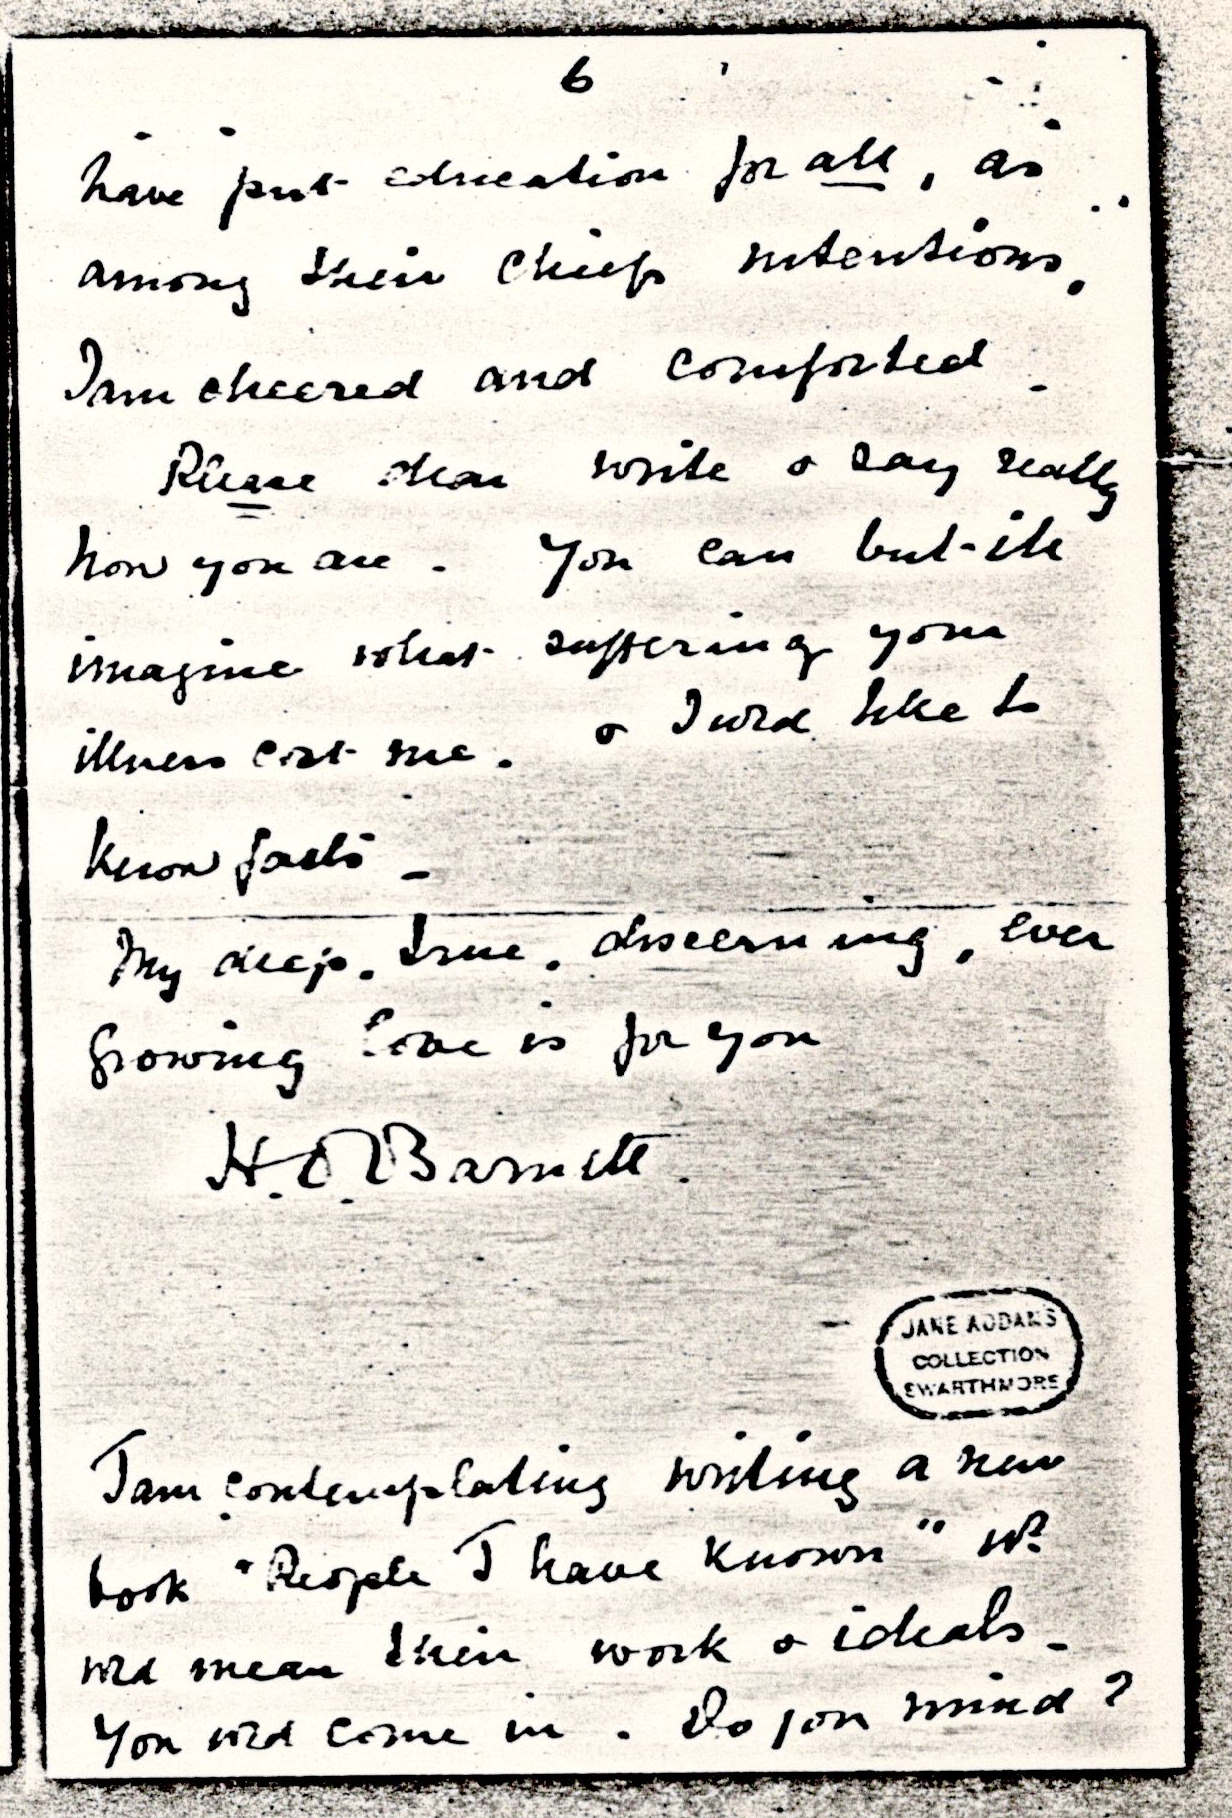 6
have put education for all, as
among their chief intentions,
I am cheered and comforted -
Please dear write & say really
how you are. You can but-ill
imagine what suffering your
illness cost me. & I wld like to
know facts -
My deep, true, discerning, ever
growing love is for you
H. O. Barnett.
JANE ADDAMS
COLLECTION
SWARTHMORE
I am contemplating writing a new
book "People I have known" wh
wld mean their work & ideals -
You wld come in. Do you mind?